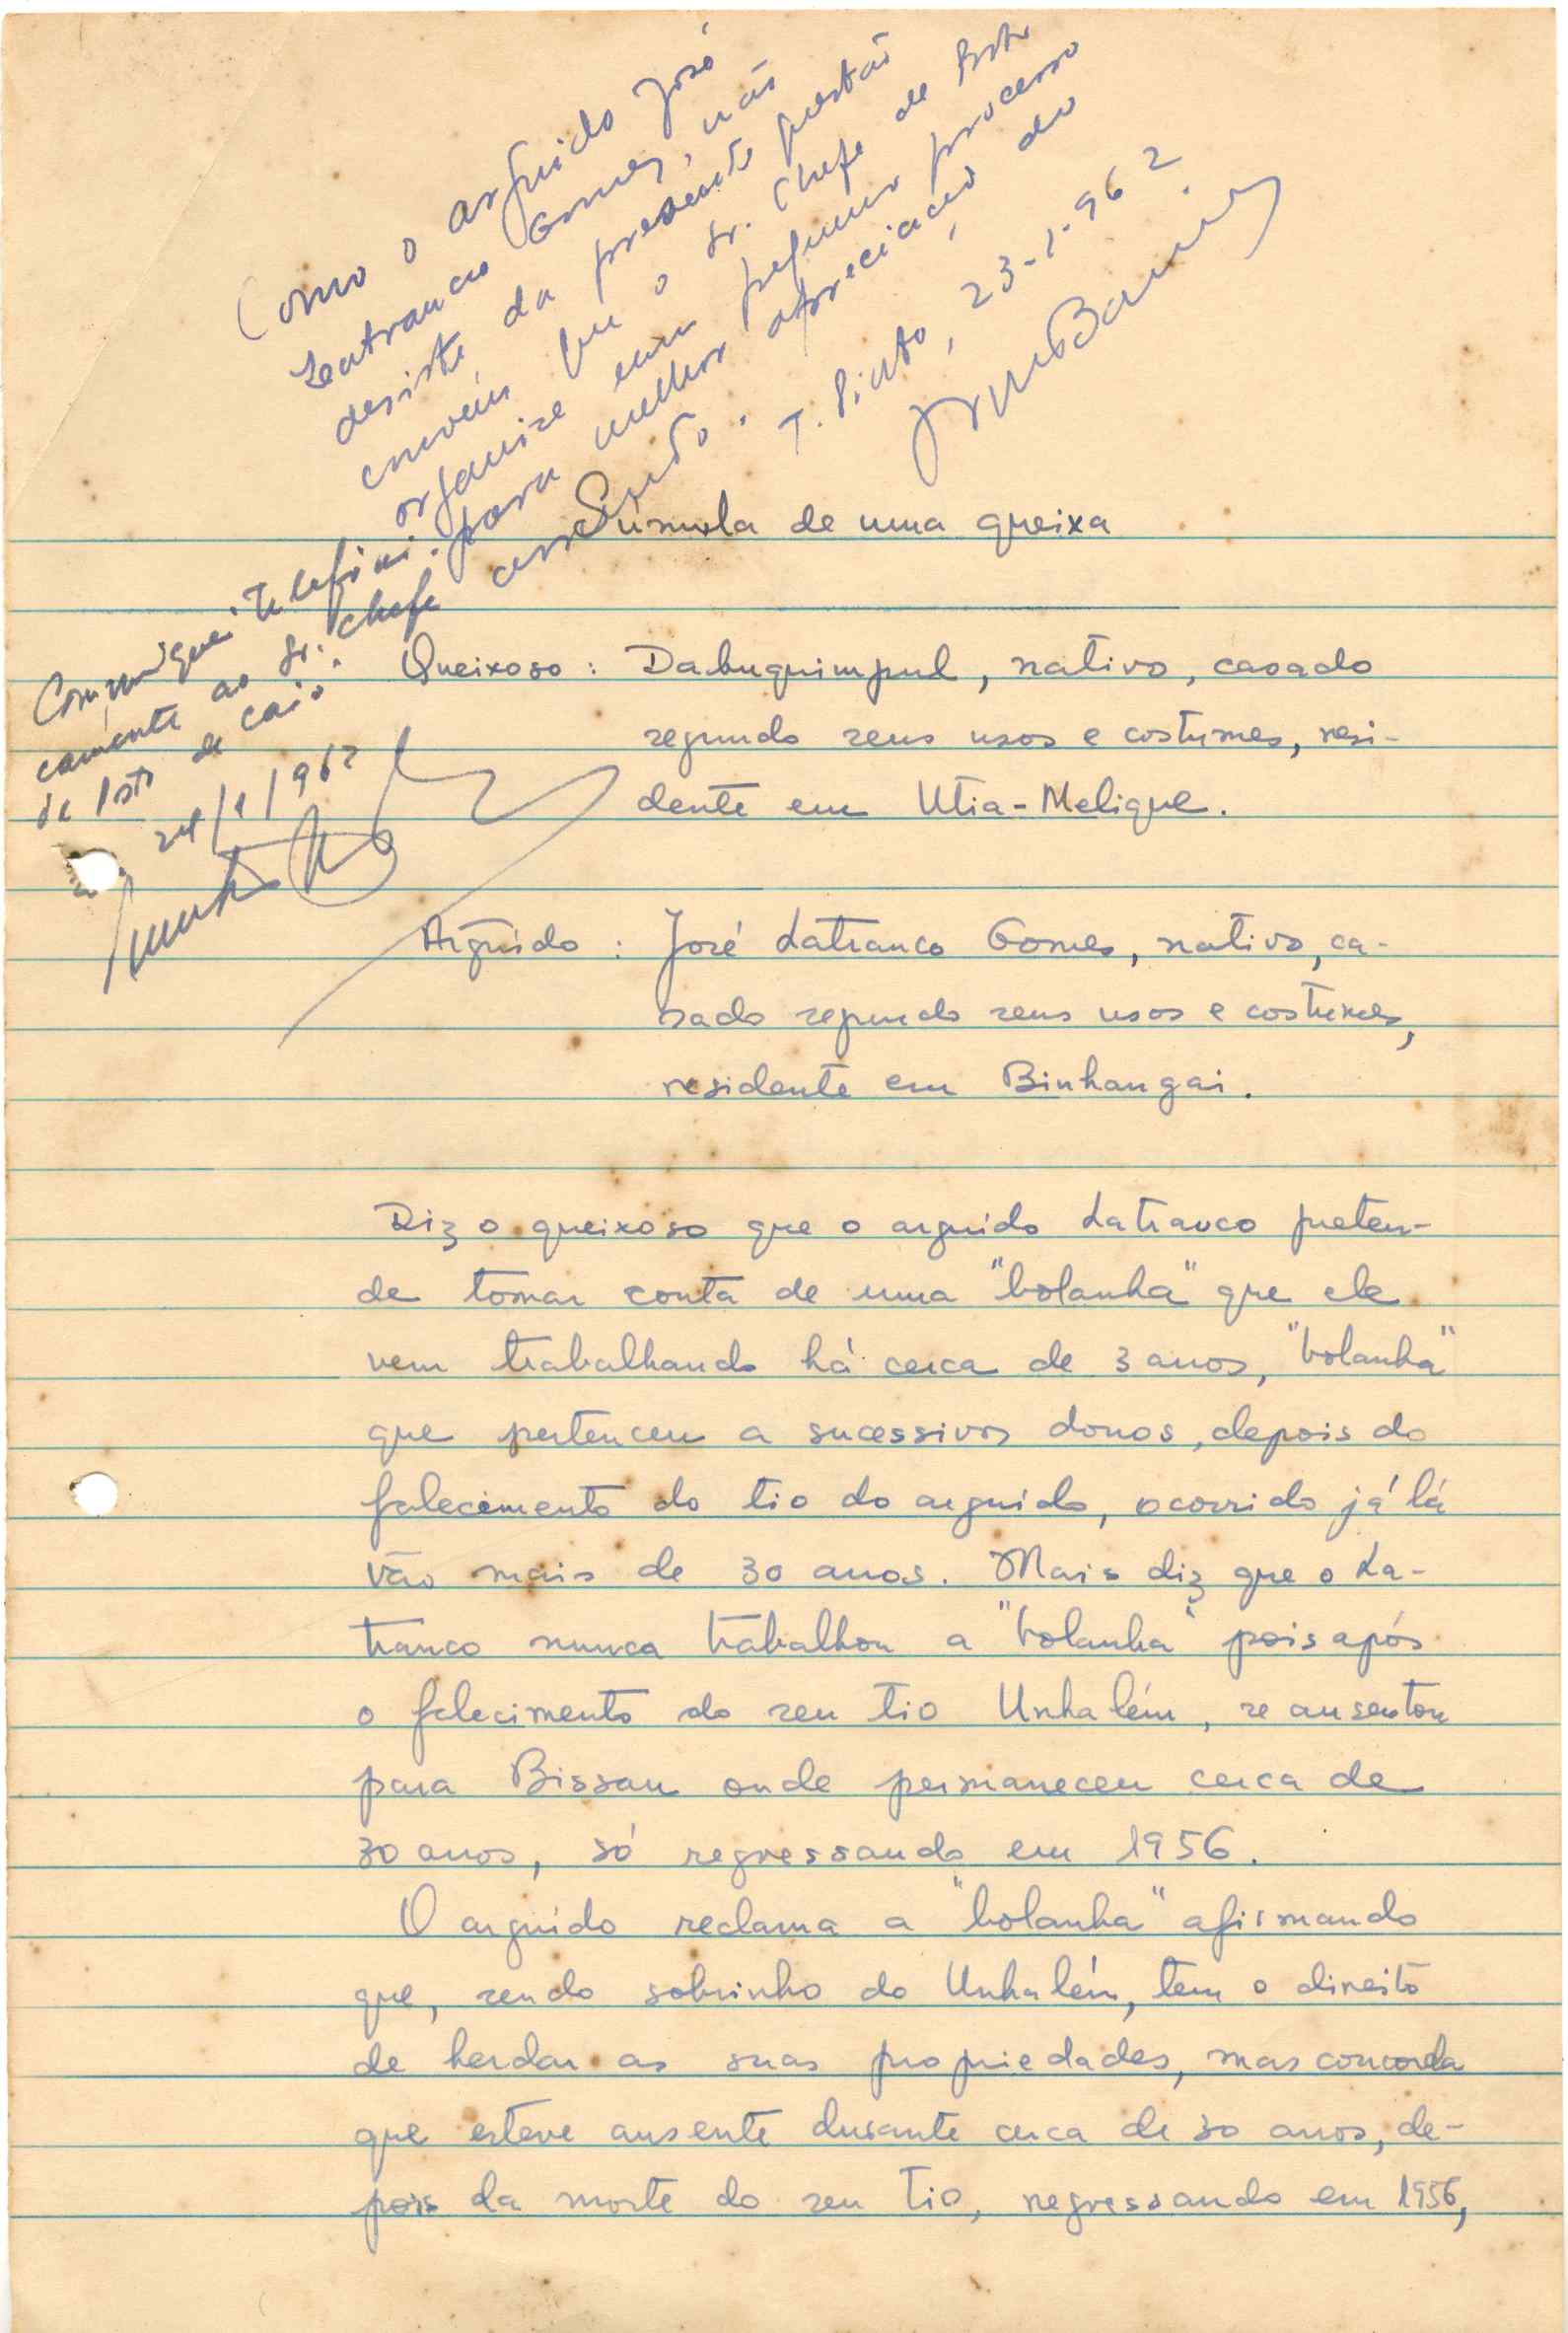 Como o arguido José
Leatranco Gomes, não
desiste da presente questão
convém que o Sr. Chefe de Posto
organize um pequeno processo
para melhor apreciação do
assunto.
T. Pinto, 23-1-962.
Comuniquei telefoni-
camente ao Sr. Chefe
de Posto de Caió.
24/1/962
Súmula de uma queixa
Queixoso: Dabuquimpul, nativo, casado
segundo seus usos e costumes, resi-
dente em Utia-Melique.
Arguido: José Latranco Gomes, nativo, ca-
sado segundo seus usos e costumes,
residente em Binhangai.
Diz o queixoso que o arguido Latranco preten-
de tomar conta de uma "bolanha" que ele
vem trabalhando há cerca de 3 anos, "bolanha"
que pertenceu a sucessivos donos, depois do
falecimento do tio do arguido, ocorrido já lá
vão mais de 30 anos. Mais diz que o La-
tranco nunca trabalhou a "bolanha" pois após
o falecimento do seu tio Unhalém, se ausentou
para Bissau onde permaneceu cerca de
30 anos, só regressando em 1956.
O arguido reclama a "bolanha" afirmando
que, sendo sobrinho do Unhalém, tem o direito
de herdar as suas propriedades, mas concorda
que esteve ausente durante cerca de 30 anos, de-
pois da morte do seu tio, regressando em 1956,